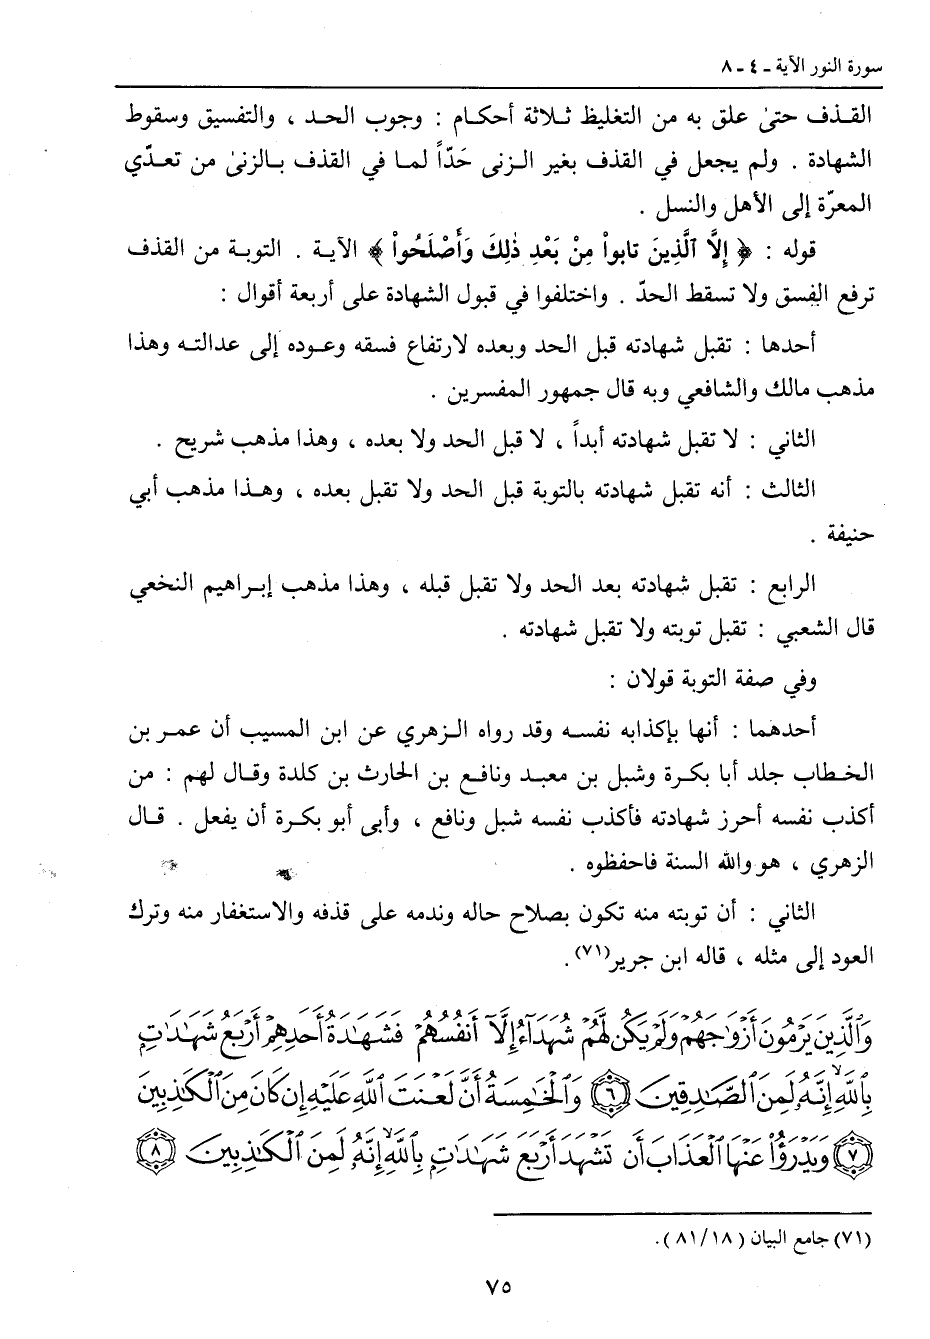 سورة النور الآية ـ ٤ ـ ٨
القذف حتىٰ علق به من التغليظ ثلاثة أحكام : وجوب الحد ، والتفسيق وسقوط
الشهادة . ولم يجعل في القذف بغير الزنى حَدّاً لما في القذف بالزنىٰ من تعدّي
المعرّة إلى الأهل والنسل .
قوله : ﴿ إِلَّا ٱلَّذِينَ تابواْ مِنْ بَعْدِ ذٰلِكَ وَأَصْلَحُواْ ﴾ الآية . التوبة من القذف
ترفع الفسق ولا تسقط الحدّ . واختلفوا في قبول الشهادة على أربعة أقوال :
أحدها : تقبل شهادته قبل الحد وبعده لارتفاع فسقه وعوده إلى عدالته وهذا
مذهب مالك والشافعي وبه قال جمهور المفسرين .
الثاني : لا تقبل شهادته أبداً ، لا قبل الحد ولا بعده ، وهذا مذهب شريح .
الثالث : أنه تقبل شهادته بالتوبة قبل الحد ولا تقبل بعده ، وهذا مذهب أبي
حنيفة .
الرابع : تقبل شهادته بعد الحد ولا تقبل قبله ، وهذا مذهب إبراهيم النخعي
قال الشعبي : تقبل توبته ولا تقبل شهادته .
وفي صفة التوبة قولان :
أحدهما : أنها بإكذابه نفسه وقد رواه الزهري عن ابن المسيب أن عمر بن
الخطاب جلد أبا بكرة وشبل بن معبد ونافع بن الحارث بن كلدة وقال لهم : من
أكذب نفسه أحرز شهادته فأكذب نفسه شبل ونافع ، وأبى أبو بكرة أن يفعل . قال
الزهري ، هو والله السنة فاحفظوه .
الثاني : أن توبته منه تكون بصلاح حاله وندمه على قذفه والاستغفار منه وترك
العود إلى مثله ، قاله ابن جرير(٧١) .
وَٱلَّذِينَ يَرْمُونَ أَزْوَٰجَهُمْ وَلَمْ يَكُن لَّهُمْ شُهَدَآءُ إِلَّآ أَنفُسُهُمْ فَشَهَٰدَةُ أَحَدِهِمْ أَرْبَعُ شَهَٰدَٰتٍۭ
بِٱللَّهِ إِنَّهُۥ لَمِنَ ٱلصَّٰدِقِينَ ٦ وَٱلْخَٰمِسَةُ أَنَّ لَعْنَتَ ٱللَّهِ عَلَيْهِ إِن كَانَ مِنَ ٱلْكَٰذِبِينَ
٧ وَيَدْرَؤُا۟ عَنْهَا ٱلْعَذَابَ أَن تَشْهَدَ أَرْبَعَ شَهَٰدَٰتٍۭ بِٱللَّهِ إِنَّهُۥ لَمِنَ ٱلْكَٰذِبِينَ ٨
(٧١) جامع البيان ( ١٨ / ٨١ ) .
٧٥